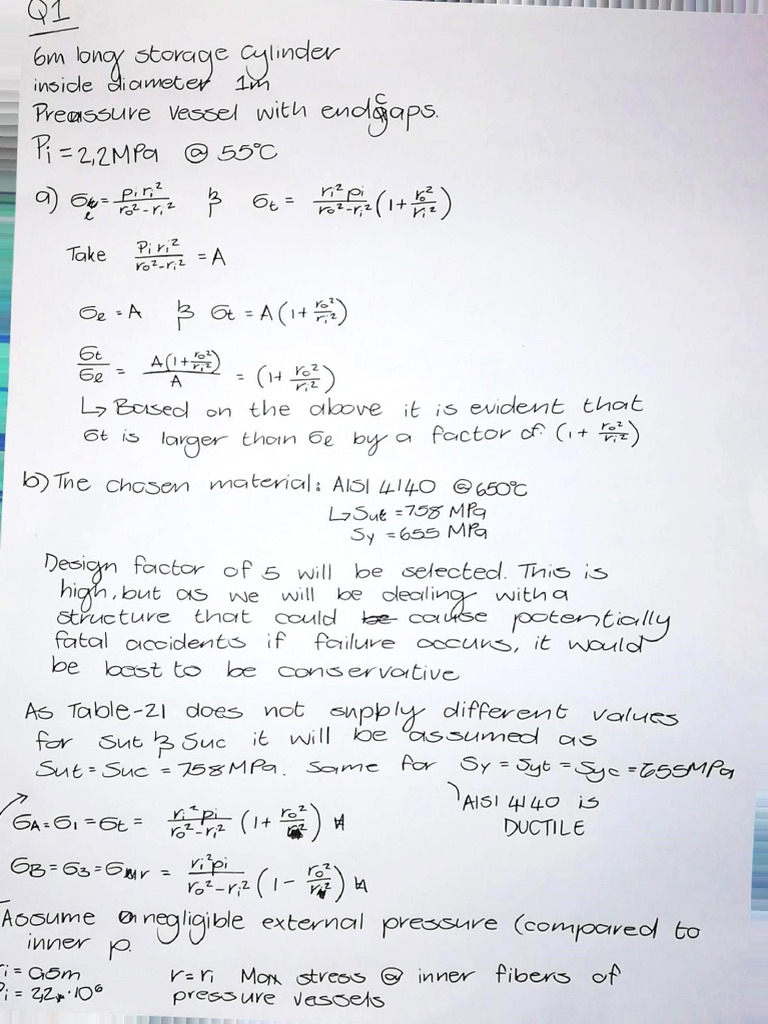 Q1
6m long storage cylinder
inside diameter 1m
Preassure vessel with endcaps.
Pi = 2,2MPa @ 55°C
a) σe = piri²/ro²-ri² & σt = ri²pi/ro²-ri² (1+ ro²/ri²)
Take Piri²/ro²-ri² = A
σe = A & σt = A(1+ ro²/ri²)
σt/σe = A(1+ ro²/ri²)/A = (1+ ro²/ri²)
↳ Based on the above it is evident that
σt is larger than σe by a factor of: (1+ ro²/ri²)
b) The chosen material: AISI 4140 @650°C
↳ Sut = 758 MPa
Sy = 655 MPa
Design factor of 5 will be selected. This is
high, but as we will be dealing with a
structure that could cause potentially
fatal accidents if failure occurs, it would
be best to be conservative
As Table-21 does not supply different values
for Sut & Suc it will be assumed as
Sut = Suc = 758MPa. Same for Sy = Syt = Syc = 655MPa
AISI 4140 is
DUCTILE
σA = σ1 = σt = ri²pi/ro²-ri² (1+ ro²/r²)
σB = σ3 = σr = ri²pi/ro²-ri² (1- ro²/r²)
Assume negligible external pressure (compared to
inner p.
ri = 0,5m r=ri Max stress @ inner fibers of
Pi = 2,2·10⁶ pressure vessels